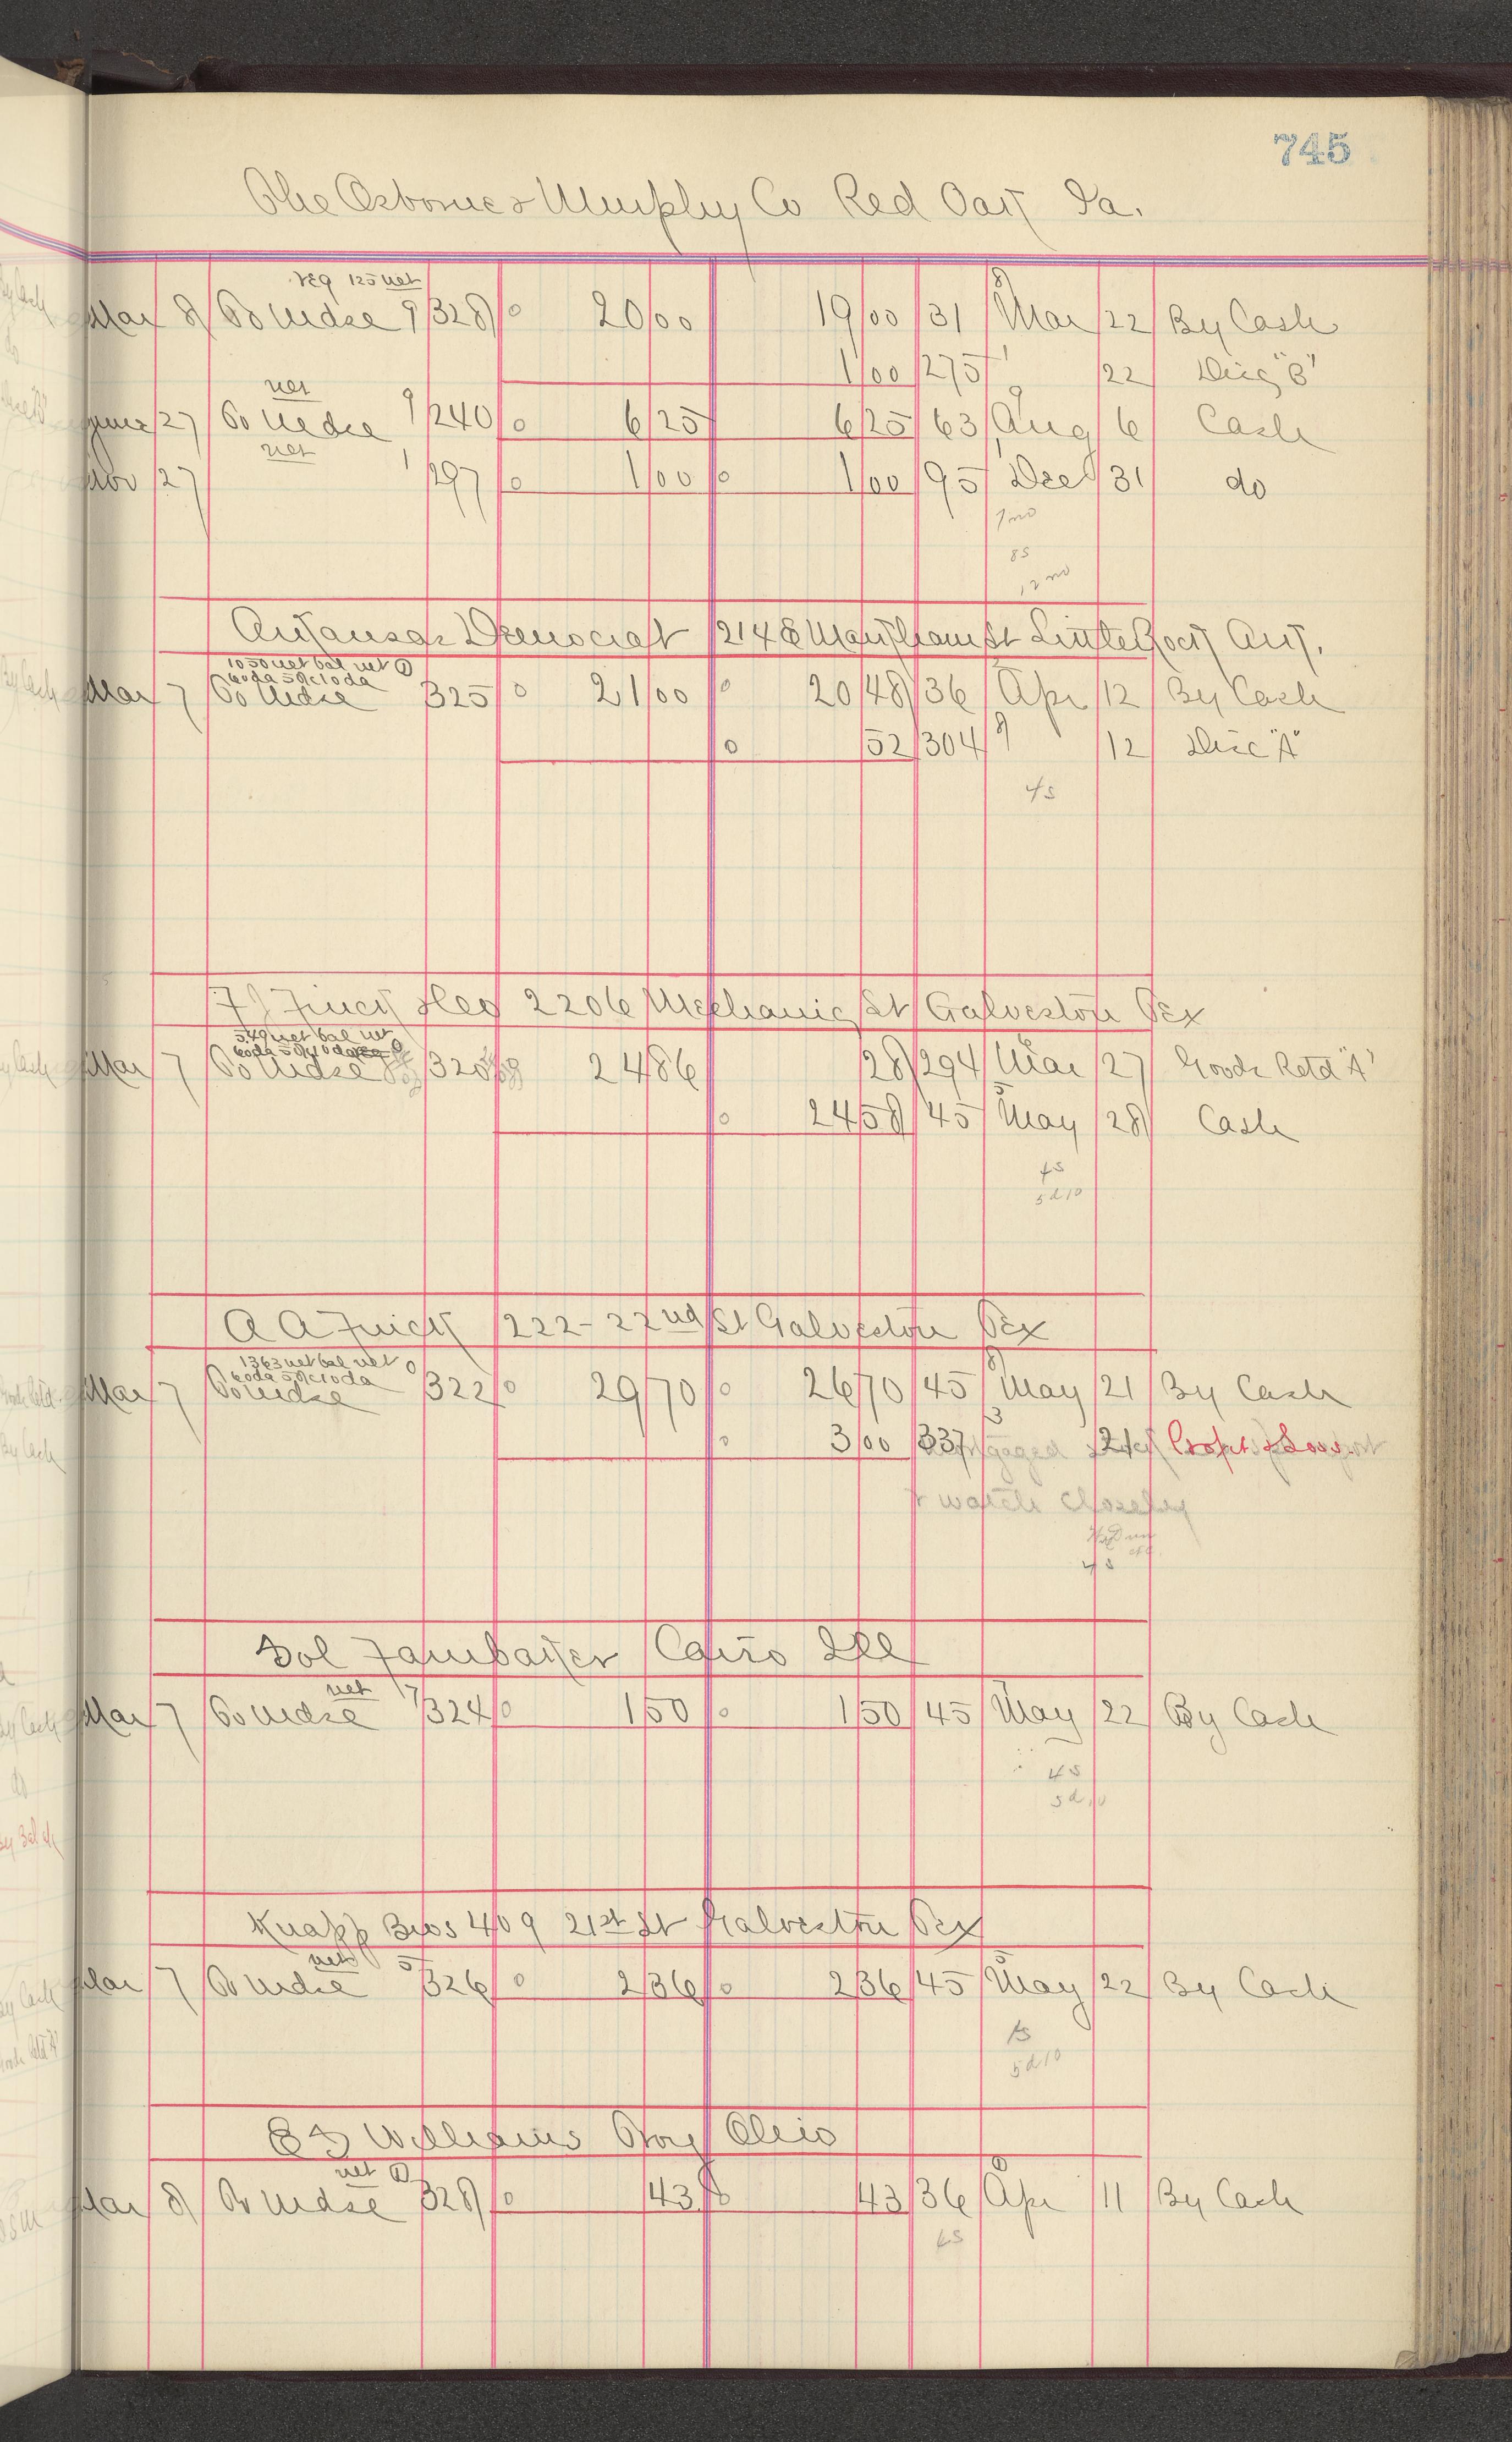 745
The Osborne & Murphy Co Red Oak Ia.
reg 125 net
Mar 8 To Mdse 9 328 0 20 00 19 00 31 Mar 22 By Cash
1 00 275 22 Disc "B"
net
June 27 To Mdse 9 240 0 6 25 6 25 63 Aug 6 Cash
net
Nov 27 1 297 0 1 00 0 1 00 95 Dec 31 do
85
Arkansas Democrat 214 E Markham St Little Rock Ark.
1050 net bal net
60 da 5% 10 da
Mar 7 To Mdse 325 0 21 00 0 20 48 36 Apr 12 By Cash
0 52 304 12 Disc "A"
4s
2206 Mechanic St Galveston Tex
549 net bal net
60 da 5% 10 da
Mar 7 To Mdse 320 24 86 28 294 Mar 27 Goods Retd "A"
0 24 58 45 May 28 Cash
4s
5d10
A A 222 - 22nd St Galveston Tex
1363 net bal net
60 da 5% 10 da
Mar 7 To Mdse 322 0 29 70 0 26 70 45 May 21 By Cash
0 3 00 337 21 Profit & Loss
watch closely
4s
Sol Farnbaker Cairo Ill
net
Mar 7 To Mdse 324 0 1 50 0 1 50 45 May 22 By Cash
4s
5d10
Knapp Bros 409 21st St Galveston Tex
net 5
Mar 7 To Mdse 326 0 2 36 0 2 36 45 May 22 By Cash
5d10
Williams Troy Ohio
net
Mar 8 To Mdse 328 0 43 0 43 36 Apr 11 By Cash